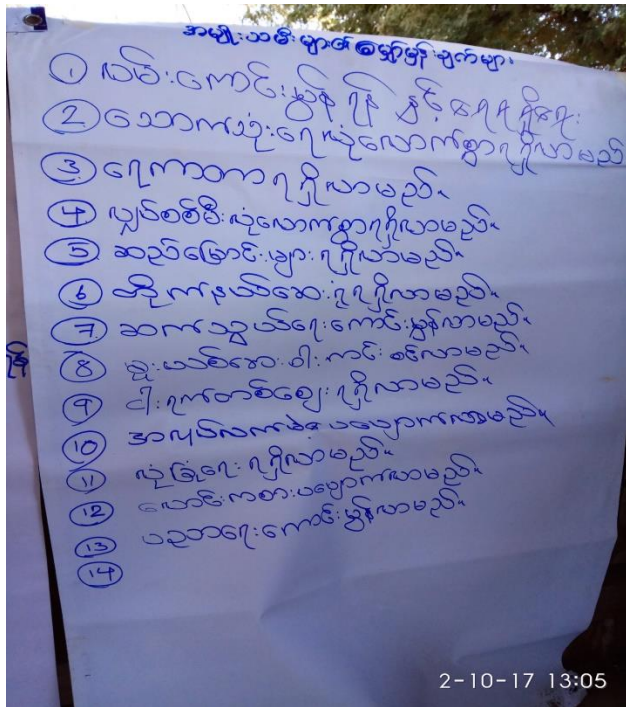 အမျိုးသမီးများ၏ မျှော်မှန်းချက်များ
① လမ်းကောင်းမွန်ရန် နှင့် ရေရရှိရေး
② သောက်သုံးရေလုံလောက်စွာရရှိလာမည်
③ ရေကာတာရရှိလာမည်။
④ လျှပ်စစ်မီးလုံလောက်စွာရရှိလာမည်။
⑤ ဆည်မြောင်းများရရှိလာမည်။
⑥ တိုက်နယ်ဆေးရုံရရှိလာမည်။
⑦ ဆက်သွယ်ရေးကောင်းမွန်လာမည်။
⑧ မူးယစ်ဆေးဝါးကင်းစင်လာမည်။
⑨ ငါးရက်တစ်ဈေးရရှိလာမည်။
⑩ အလုပ်လက်မဲ့ ပပျောက်လာမည်။
⑪ လုံခြုံရေးရရှိလာမည်။
⑫ လောင်းကစားပပျောက်လာမည်။
⑬ ပညာရေးကောင်းမွန်လာမည်။
⑭
2-10-17 13:05